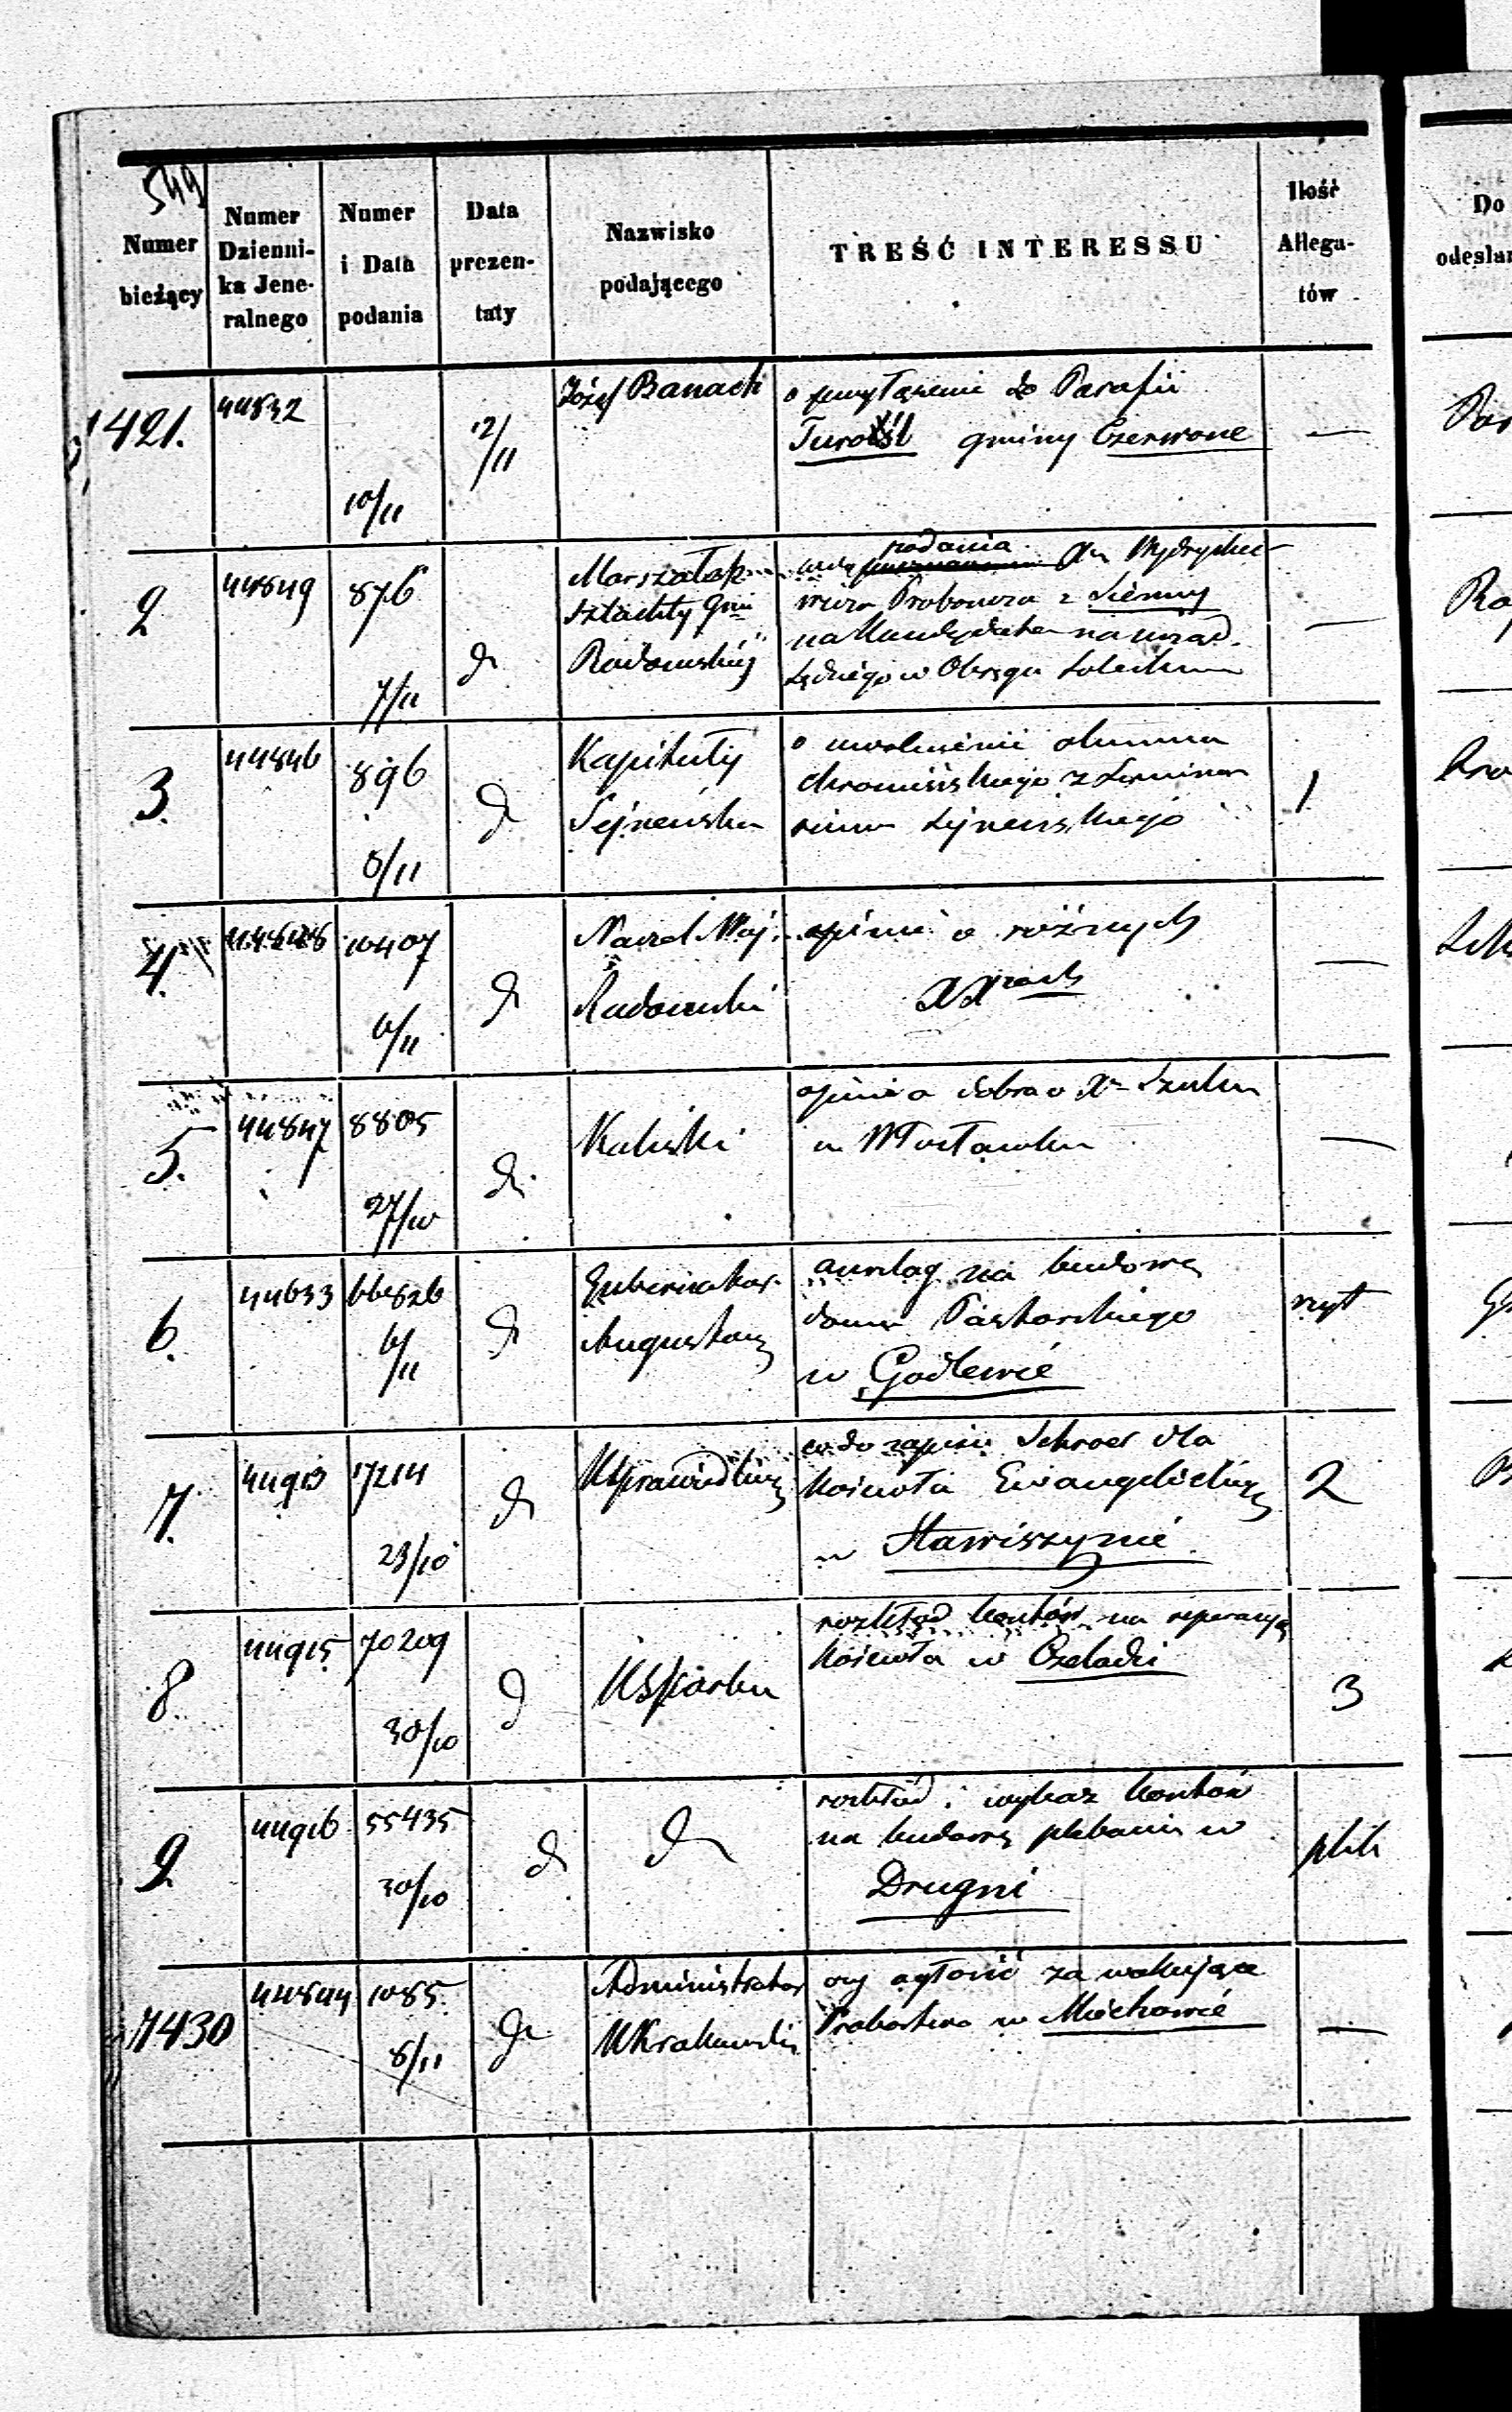 549
Numer bieżący
Numer Dzienni- ka Jene- ralnego
Numer i Data podania
Data prezen- taty
Nazwisko podającego
TREŚĆ INTERESSU
Ilość Allega- tów
Do
odesłan
7421. 44832 10/11 12/11 Józef Banach
o przyłączenie do Parafii
Turośl gminy Czerwone —
2 44849 876 7/11 d
Marszałek
szlachty Gui
Radomskiej
podania
Proboszcza z Sienny
w Okręgu Soleckim —
3. 44846 896 8/11 d
Kapituły
Sejneńska
o uwolnieniu alumna
z Semina
rium Sejneńskiego 1
4. 10407 6/11 d
Naczel Woj.
Radomski
opinie o różnych
XXzach —
5. 44847 8805 27/10 d
Kaliski
opinia dobra o Xu Szulcu
w Włocławku —
6. 44633 66826 6/11 d
Gubernator
Augustow
anszlag na budowę
domu Pastorskiego
w Godlewie szyt
7. 44913 17214 23/10 d
KSprawiedliwoś
co do zapisu Schroer dla
kościoła Ewangelickiego
w Stawiszynie 2
8. 44915 70209 30/10 d
KSkarbu
rozkład kosztów na reperacyą
kościoła w Czeladzi 3
9. 44916 55435 30/10 d
d
rozkład i wykaz kosztów
na budowę plebanii w
Drugni plik
7430 44844 1085 8/11 d
Administrator
KKrakowski
czy ogłosić za wakujące
Probostwo w Miechowie —